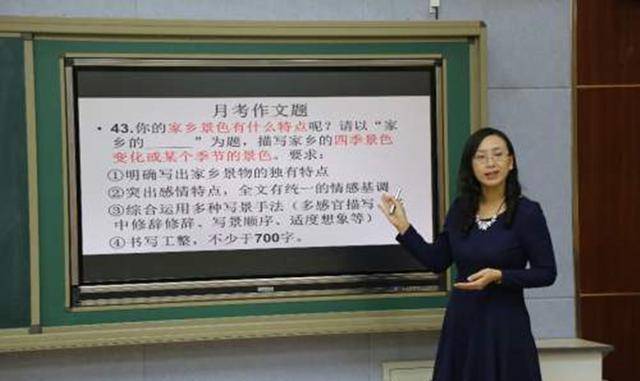 月考作文题
• 43.你的家乡景色有什么特点呢？请以“家
乡的______”为题，描写家乡的四季景色
变化或某个季节的景色。要求：
①明确写出家乡景物的独有特点
②突出感情特点，全文有统一的情感基调
③综合运用多种写景手法（多感官描写、
中修辞修辞、写景顺序、适度想象等）
④书写工整，不少于700字。